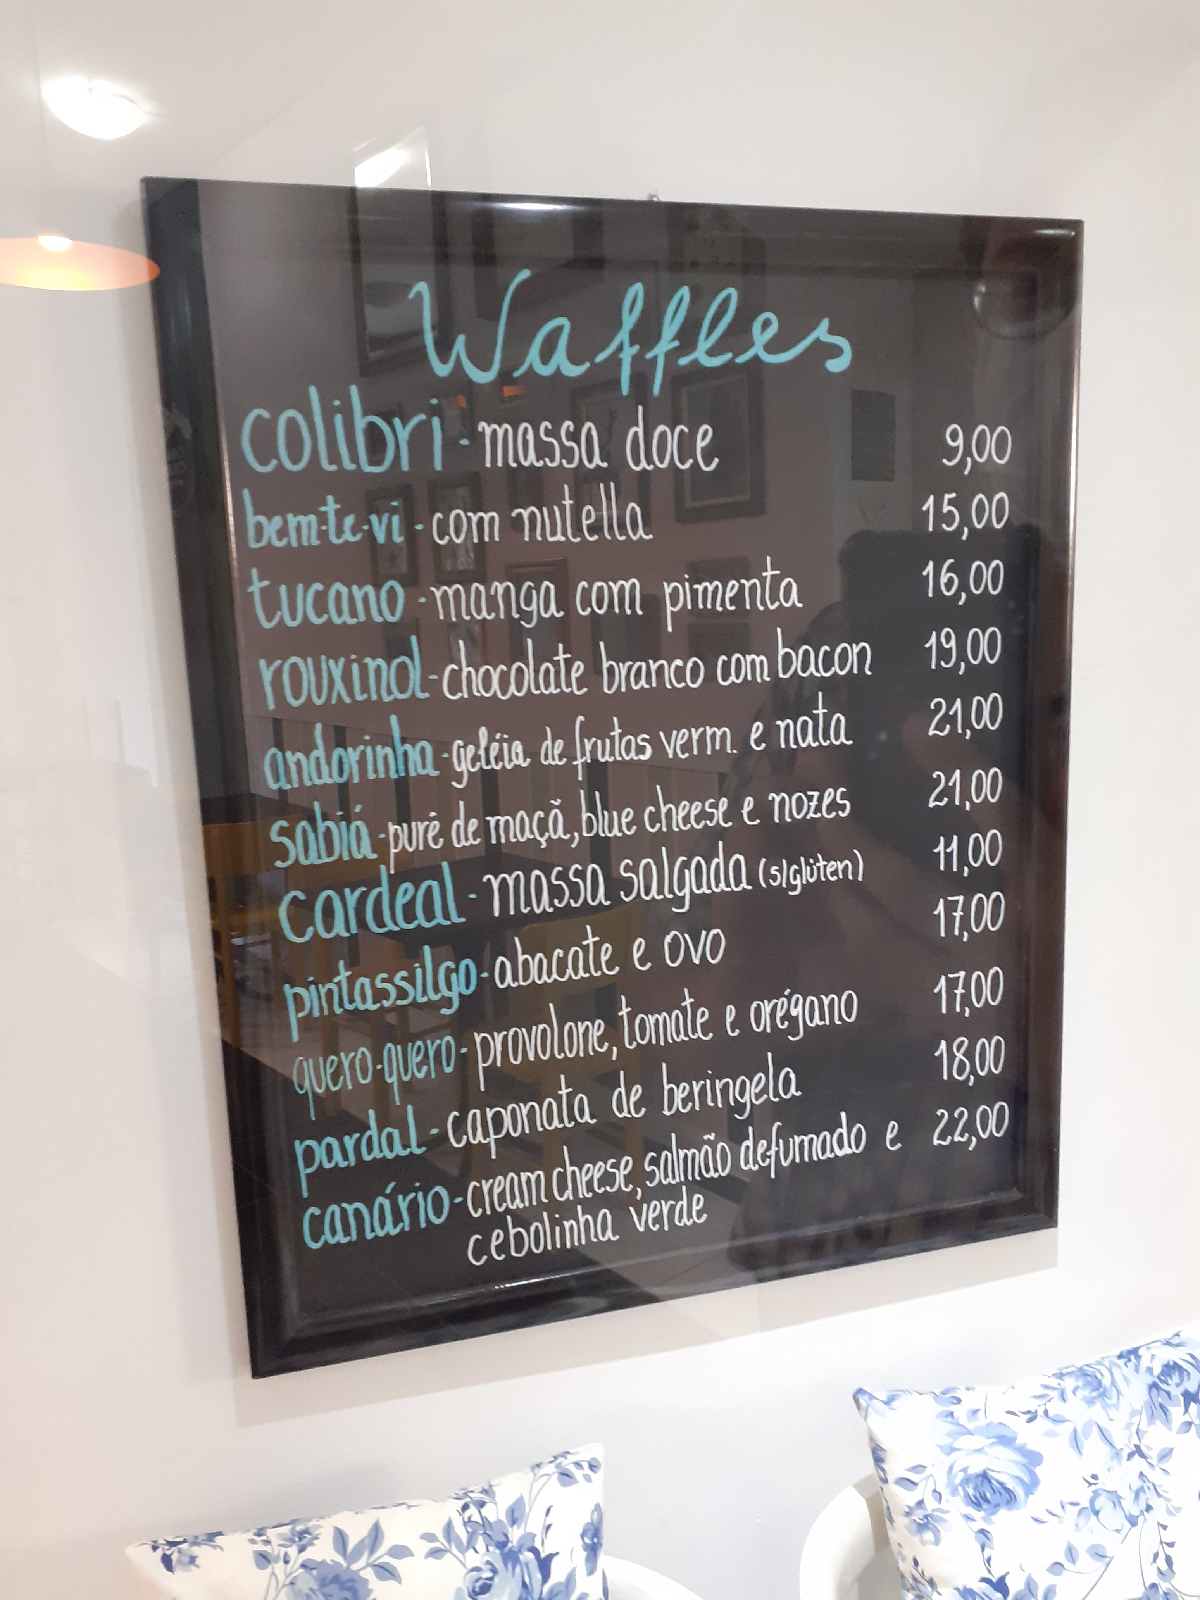 Waffles
colibri - massa doce 9,00
bem-te-vi - com nutella 15,00
tucano - manga com pimenta 16,00
rouxinol - chocolate branco com bacon 19,00
andorinha - geléia de frutas verm. e nata 21,00
sabiá - purê de maçã, blue cheese e nozes 21,00
cardeal - massa salgada (s/glúten) 11,00
pintassilgo - abacate e ovo 17,00
quero-quero - provolone, tomate e orégano 17,00
pardal - caponata de beringela 18,00
canário - cream cheese, salmão defumado e 22,00
cebolinha verde